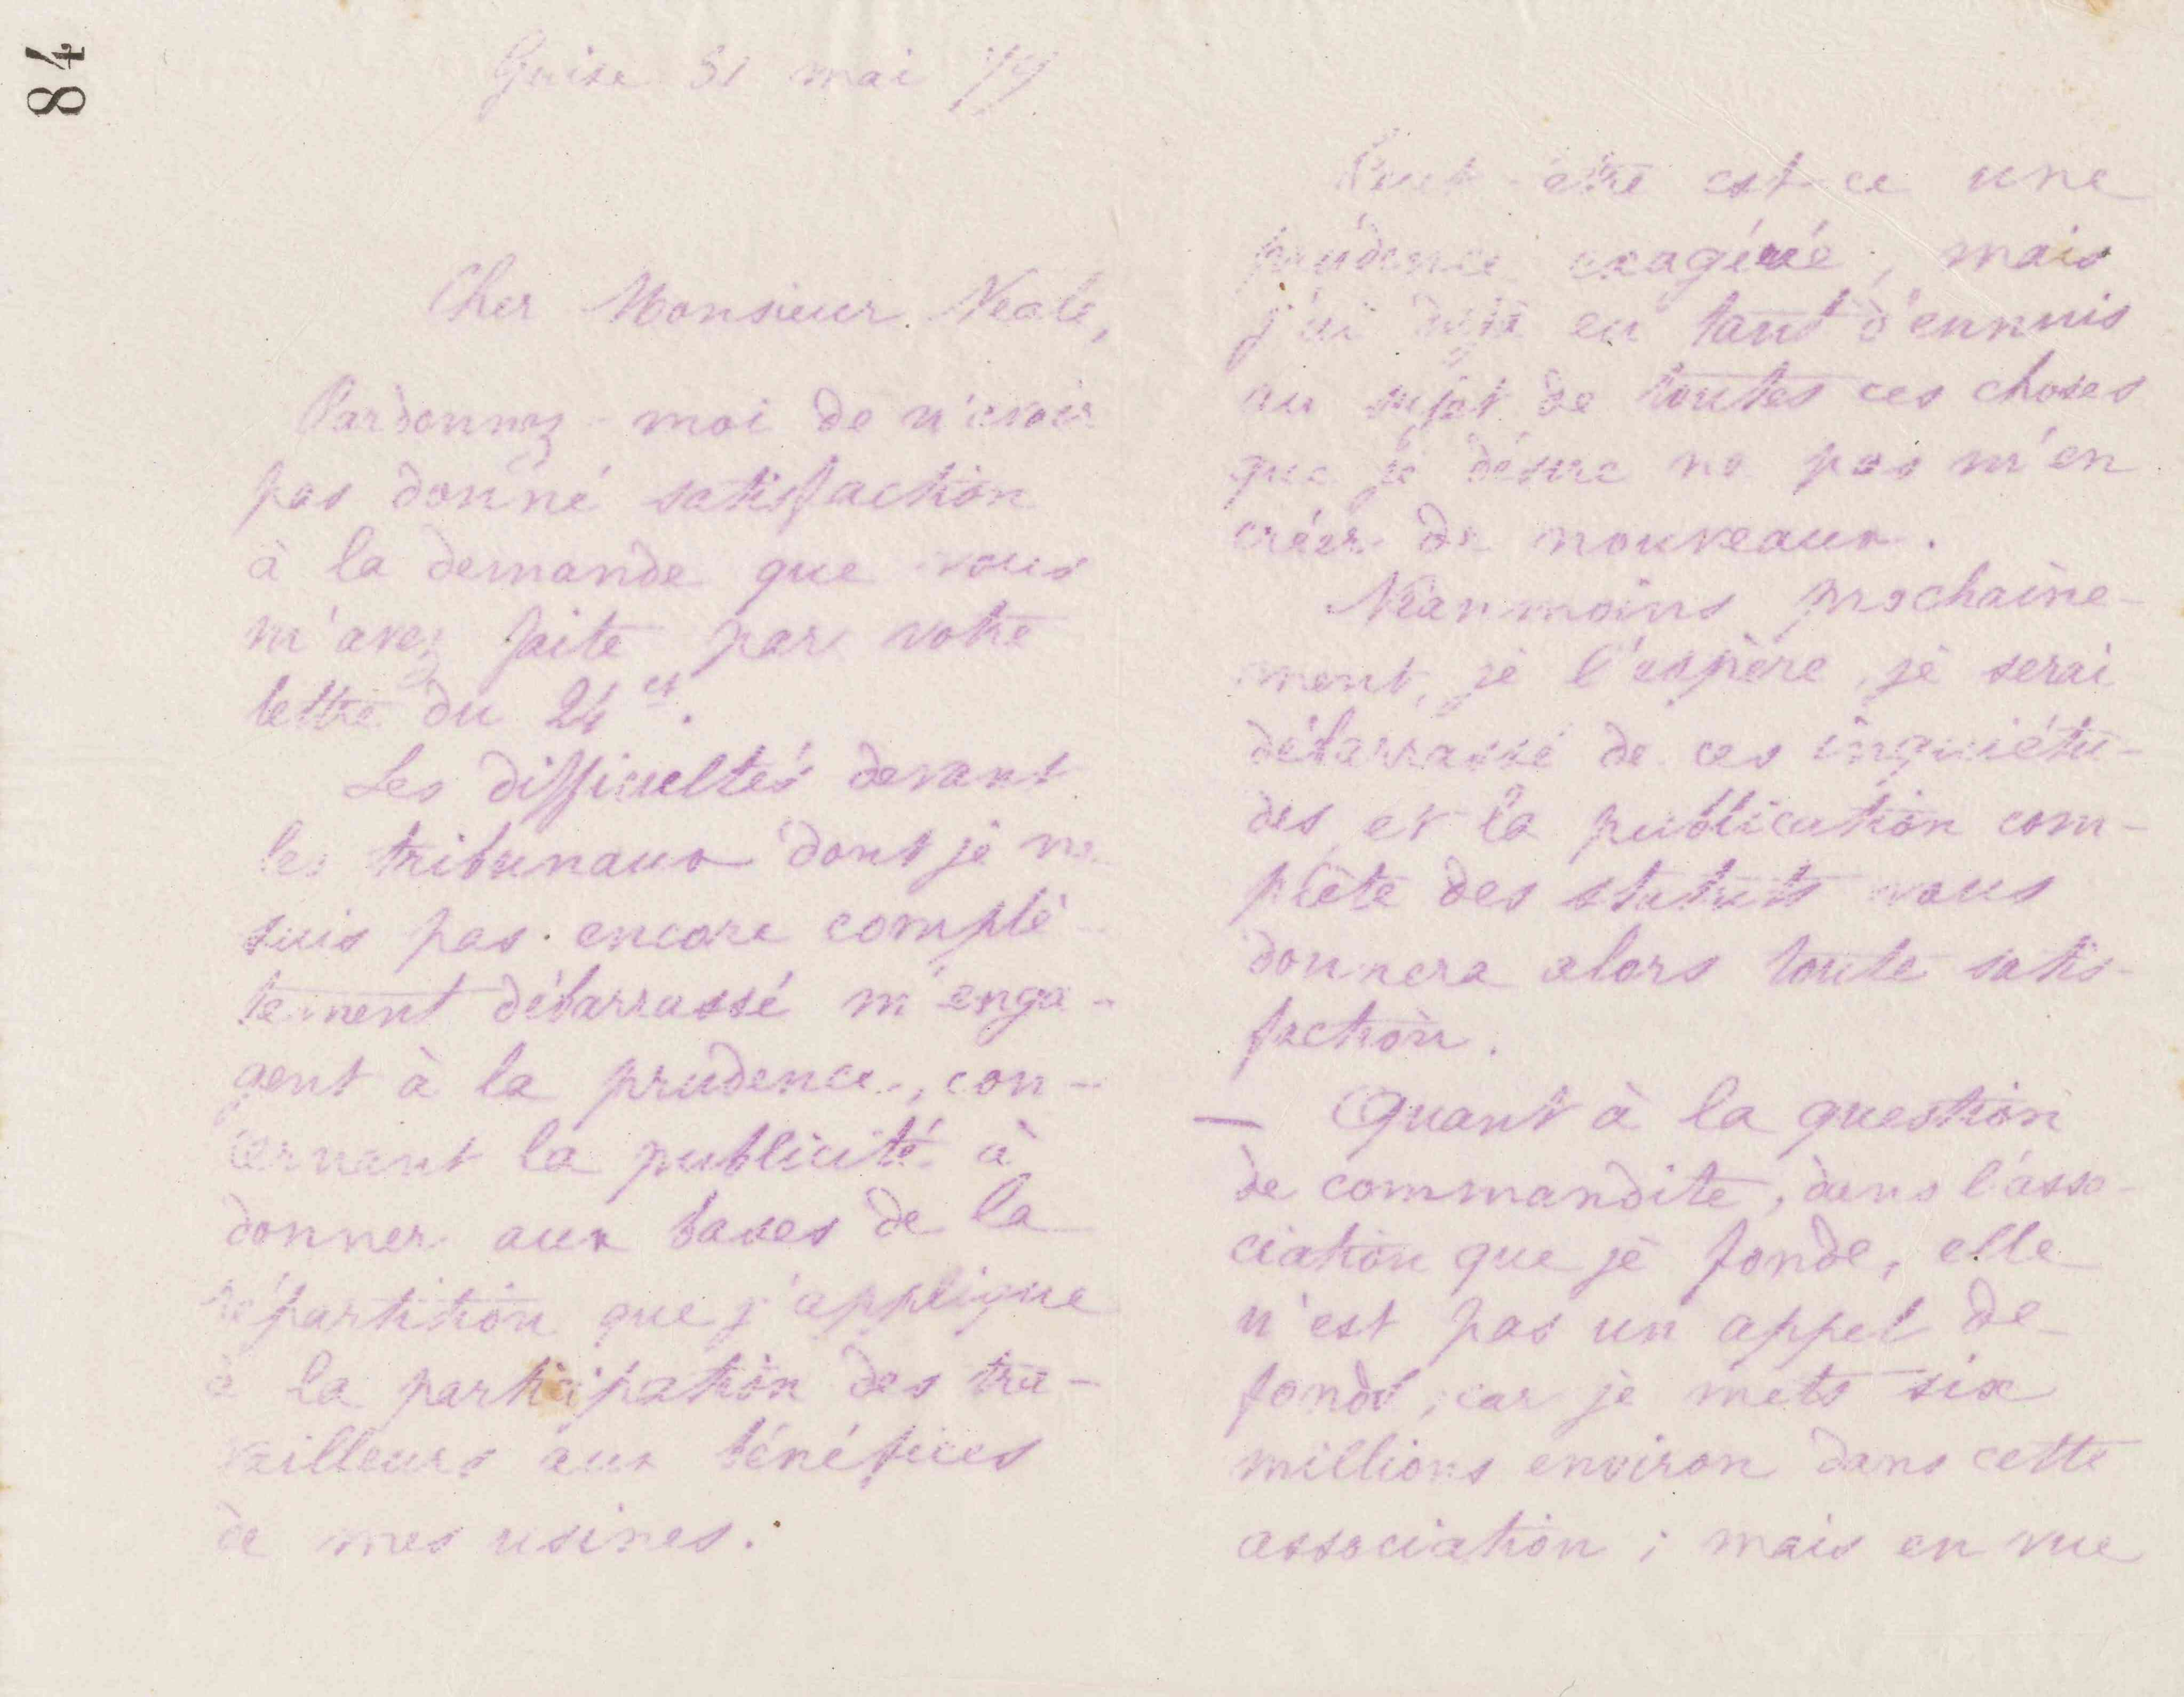 84
Guise 31 mai 79
Cher Monsieur Neale,
Pardonnez-moi de n'avoir
pas donné satisfaction
à la demande que vous
m'avez faite par votre
lettre du 24 ct.
Les difficultés devant
les tribunaux dont je ne
suis pas encore complè-
tement débarrassé m'enga-
gent à la prudence, con-
cernant la publicité à
donner aux bases de la
répartition que j'applique
à la participation des tra-
vailleurs aux bénéfices
de mes usines.
Peut-être est-ce une
prudence exagérée, mais
j'ai déjà eu tant d'ennuis
au sujet de toutes ces choses
que je désire ne pas m'en
créer de nouveaux.
Néanmoins prochaine-
ment, je l'espère, je serai
débarrassé de ces inquiétu-
des, et la publication com-
plète des statuts vous
donnera alors toute satis-
faction.
— Quant à la question
de commandite, dans l'asso-
ciation que je fonde, elle
n'est pas un appel de
fonds, car je mets six
millions environ dans cette
association ; mais en vue